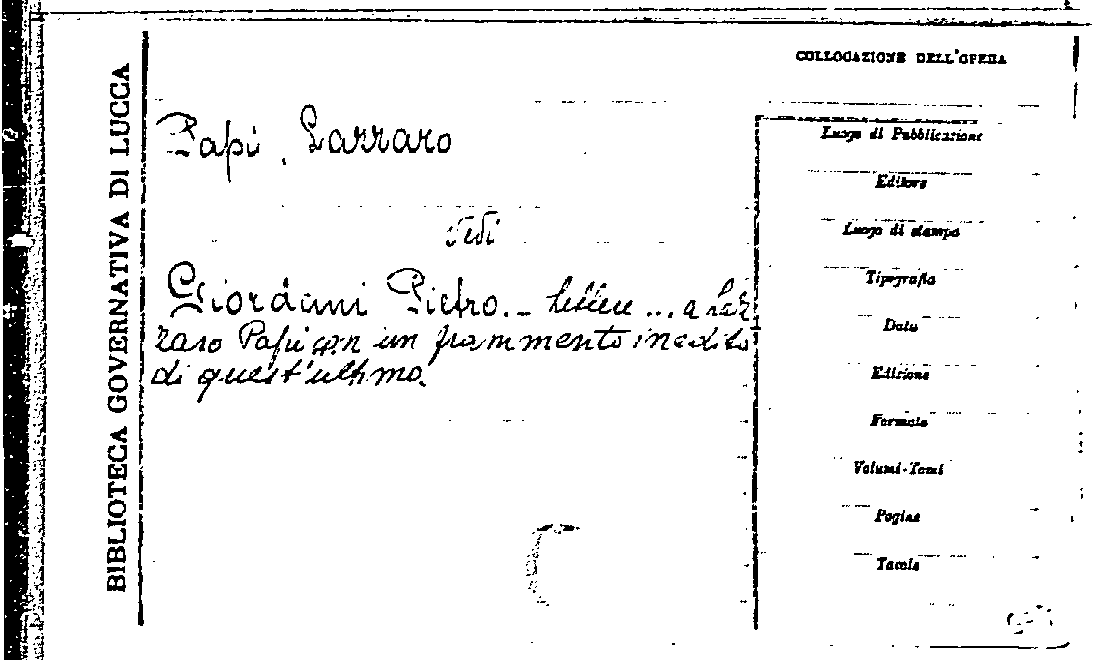 BIBLIOTECA GOVERNATIVA DI LUCCA
COLLOCAZIONE DELL'OPERA
Papi, Lazzaro
Vedi
Giordani Pietro. – Lettere ... a Laz
zaro Papi con un frammento inedito
di quest'ultimo.
Luogo di Pubblicazione
Editore
Luogo di stampa
Tipografia
Data
Edizione
Formato
Volumi-Tomi
Pagine
Tavole